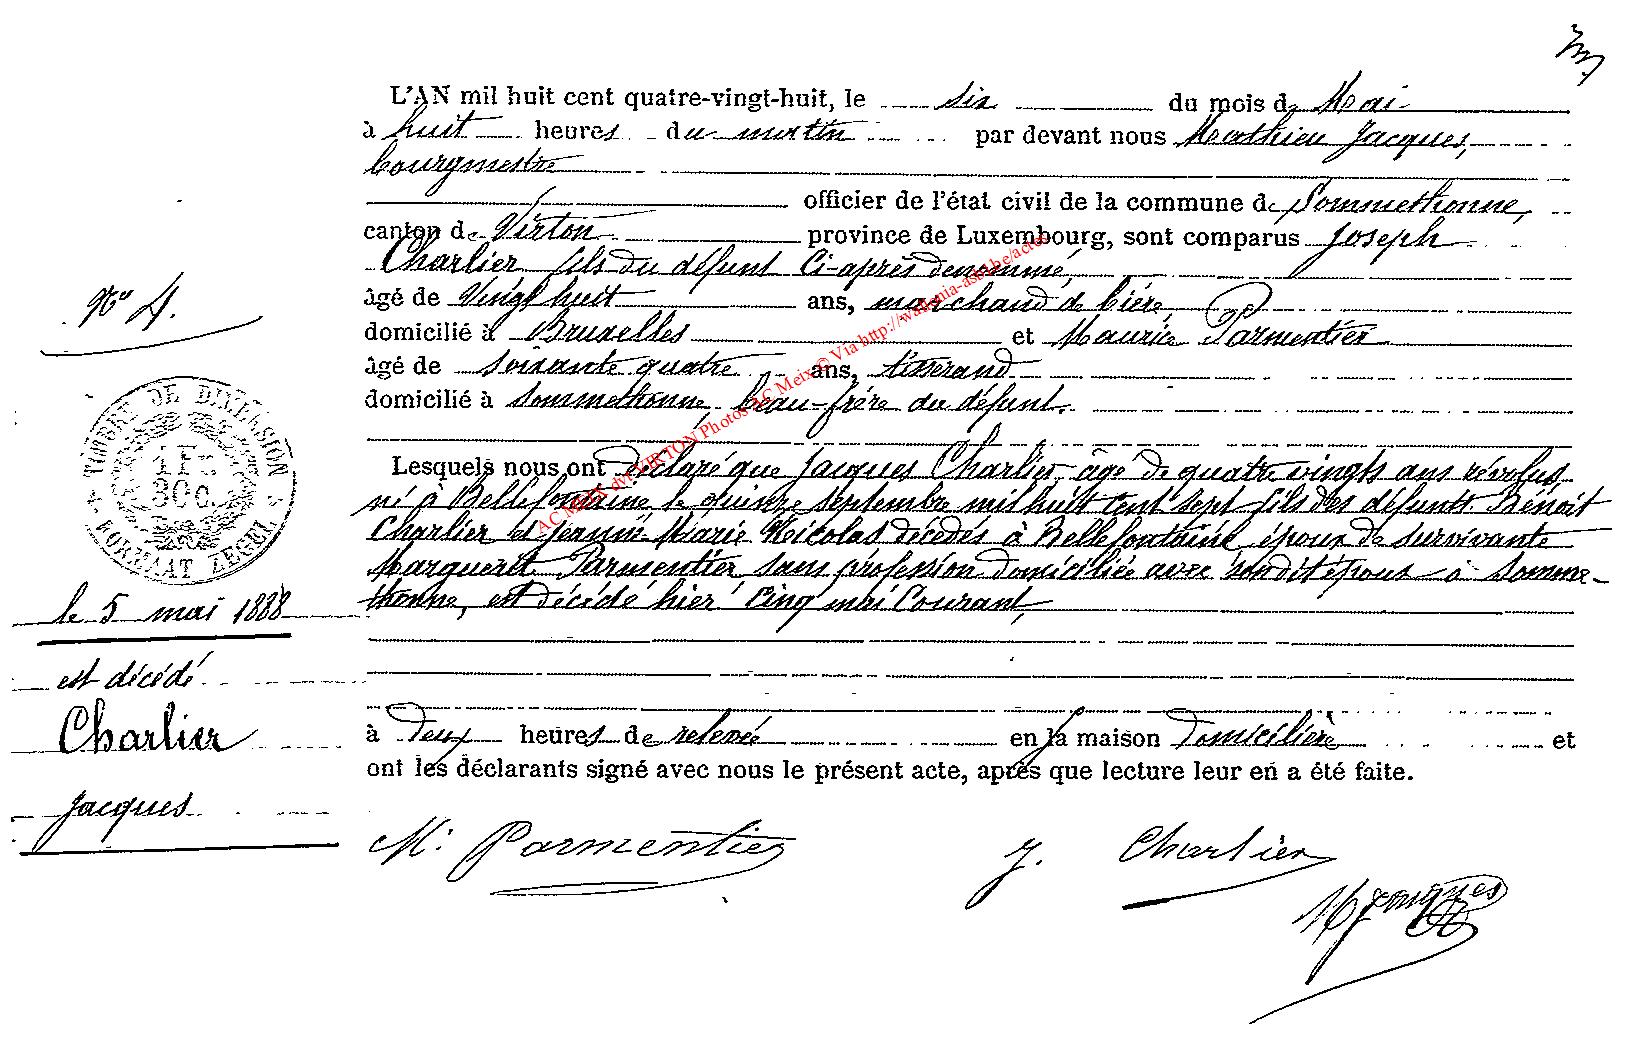 L'AN mil huit cent quatre-vingt-huit, le six du mois de Mai
à huit heures du matin par devant nous Mathieu Jacques,
bourgmestre
officier de l'état civil de la commune de Sommethonne,
canton de Virton province de Luxembourg, sont comparus Joseph
Charlier, fils du défunt ci-après dénommé,
âgé de Vingt huit ans, marchand de bière,
domicilié à Bruxelles et Maurice Parmentier
âgé de soixante quatre ans, tisserand
domicilié à Sommethonne, beau-frère du défunt.
Lesquels nous ont déclaré que Jacques Charlier, âgé de quatre vingts ans révolus
né à Bellefontaine le quinze septembre mil huit cent sept fils des défunts Bénoit
Charlier et Jeanne Marie Nicolas décédés à Bellefontaine, époux de survivante
Marguerite Parmentier, sans profession domiciliée avec son dit époux à Somme-
thonne, est décédé hier cinq mai courant,
à deux heures de relevée en la maison domicilière et
ont les déclarants signé avec nous le présent acte, après que lecture leur en a été faite.
M. Parmentier J. Charlier
M Jacques
N° 4.
TIMBRE DE DIMENSION
1 Fr.
30 c.
FORMAAT ZEGEL
le 5 mai 1888
est décédé
Charlier
Jacques
AC MEIX dvt VIRTON Photos AC Meix © Via http://wallonia-asbl.be/actes